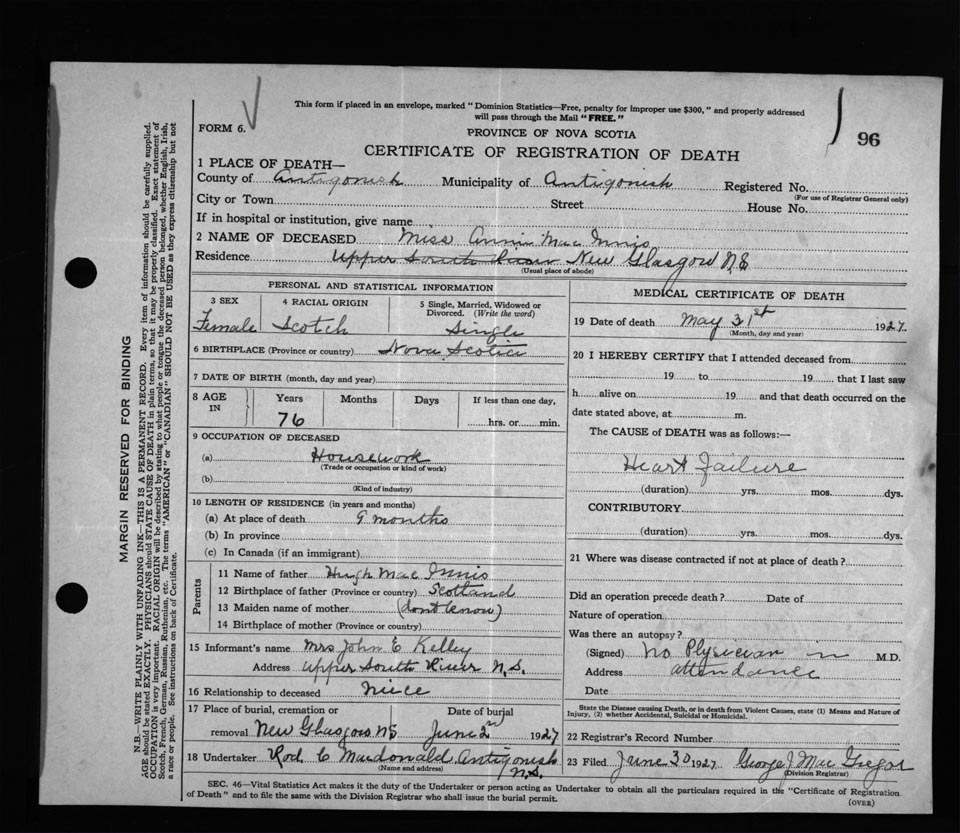 This form if placed in an envelope, marked "Dominion Statistics—Free, penalty for improper use $300," and properly addressed
will pass through the Mail "FREE."
96
FORM 6.
PROVINCE OF NOVA SCOTIA
CERTIFICATE OF REGISTRATION OF DEATH
1 PLACE OF DEATH—
County of Antigonish Municipality of Antigonish Registered No.
(For use of Registrar General only)
City or Town Street House No.
If in hospital or institution, give name
2 NAME OF DECEASED Miss Annie Mac Innis
Residence Upper South River New Glasgow N.S
(Usual place of abode)
PERSONAL AND STATISTICAL INFORMATION
3 SEX 4 RACIAL ORIGIN 5 Single, Married, Widowed or
Divorced. (Write the word)
Female Scotch Single
6 BIRTHPLACE (Province or country) Nova Scotia
7 DATE OF BIRTH (month, day and year)
8 AGE IN Years Months Days If less than one day,
76 hrs. or min.
9 OCCUPATION OF DECEASED
(a) Housework
(Trade or occupation or kind of work)
(b)
(Kind of industry)
10 LENGTH OF RESIDENCE (in years and months)
(a) At place of death 9 months
(b) In province
(c) In Canada (if an immigrant)
Parents
11 Name of father Hugh Mac Innis
12 Birthplace of father (Province or country) Scotland
13 Maiden name of mother (dont know)
14 Birthplace of mother (Province or country)
15 Informant's name Mrs John E Kelley
Address Upper South River N.S.
16 Relationship to deceased niece
17 Place of burial, cremation or Date of burial
removal New Glasgow NS June 2nd 1927
18 Undertaker Rod C Macdonald Antigonish
(Name and address) N.S.
MEDICAL CERTIFICATE OF DEATH
19 Date of death May 31st 1927.
(Month, day and year)
20 I HEREBY CERTIFY that I attended deceased from
19 to 19 that I last saw
h alive on 19 and that death occurred on the
date stated above, at m.
The CAUSE of DEATH was as follows:—
Heart Failure
(duration) yrs. mos. dys.
CONTRIBUTORY
(duration) yrs. mos. dys.
21 Where was disease contracted if not at place of death?
Did an operation precede death? Date of
Nature of operation
Was there an autopsy?
(Signed) No Plysician in M.D.
Address attendance
Date
State the Disease causing Death, or in death from Violent Causes, state (1) Means and Nature of
Injury, (2) whether Accidental, Suicidal or Homicidal.
22 Registrar's Record Number
23 Filed June 30 1927 George J Mac Gregor
(Division Registrar)
SEC. 46—Vital Statistics Act makes it the duty of the Undertaker or person acting as Undertaker to obtain all the particulars required in the "Certificate of Registration
of Death" and to file the same with the Division Registrar who shall issue the burial permit.
(OVER)
MARGIN RESERVED FOR BINDING
N.B.—WRITE PLAINLY WITH UNFADING INK—THIS IS A PERMANENT RECORD. Every item of information should be carefully supplied.
AGE should be stated EXACTLY. PHYSICIANS should STATE CAUSE OF DEATH in plain terms, so that it may be properly classified. Exact statement of
OCCUPATION is very important. RACIAL ORIGIN will be described by stating to what people or tongue the deceased person belonged, whether English, Irish,
Scotch, French, German, Russian, Ruthenian, etc. The terms "AMERICAN" or "CANADIAN" SHOULD NOT BE USED as they express citizenship but not
a race or people. See instructions on back of Certificate.